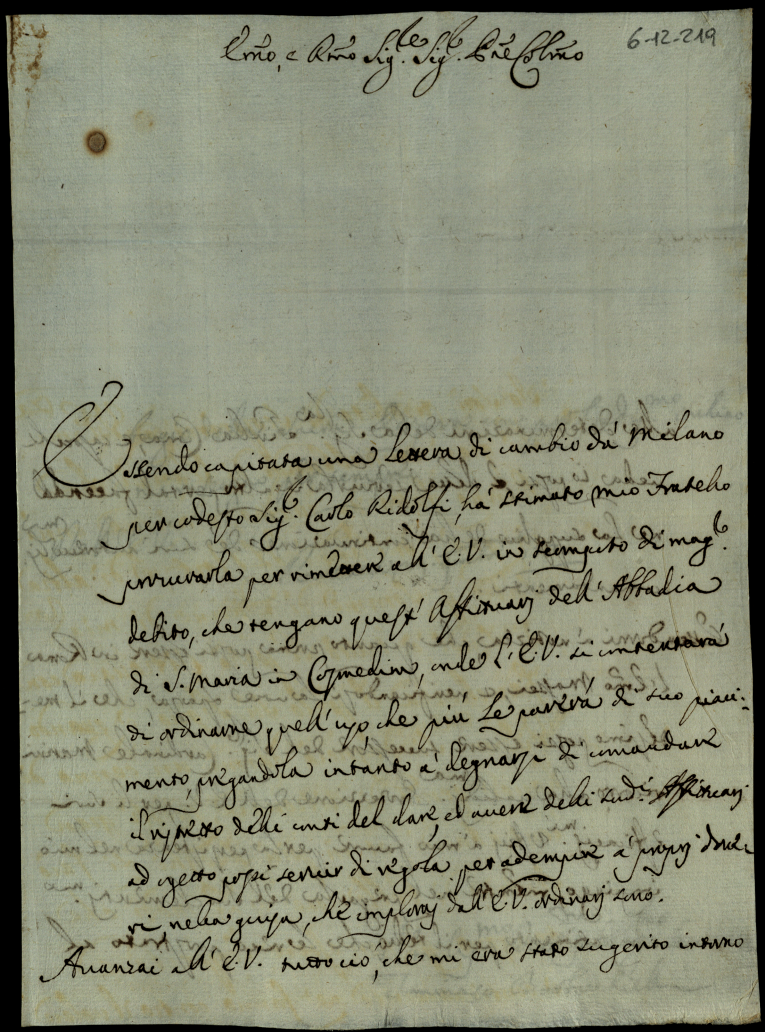 6-12-219
Emo, e Rmo Sig.re Sig.r Pne Colmo
Essendo capitata una lettera di cambio da' Milano
per codesto Sig.r Carlo Ridolfi, ha' stimato mio Fratello
procurarla per rimettere all' E.V. in scomputo di magr.
debito, che tengano quest' Affittuarj dell' Abbadia
di S. Maria in Cosmedin, onde l' E.V. si contentará
di ordinarne quell' uso, che piú Le parerá di suo piaci:
mento, pregandola intanto a' degnarsi di comandare
il ripetto delli conti del dare, ed avere delli sud.i Affittuarj
ad ogetto possi servir di regola per adempire a' proprj dove:
ri, nella guisa, che implorai dall' E.V. ordinarj sono.
Avanzai all' E.V. tutto ciò, che mi era stato sugerito intorno